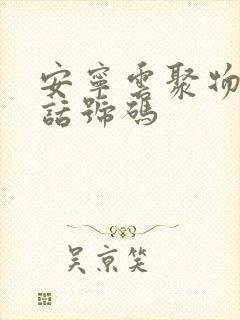 安寧雲聚物
話號碼
吳京笑